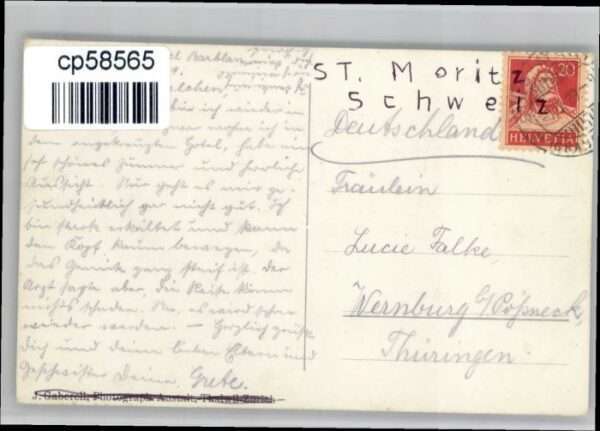 cp58565
ST. Moritz
Schweiz
20
HELVETIA
Deutschland
Fräulein
Lucie Falke,
Wernburg b/Pößneck,
Thüringen.
bin ich wieder in
wohne ich in
dem angekreuzten Hotel, habe ein
so schönes Zimmer und herrliche
Aussicht. Nur geht es mir ge-
sundheitlich gar nicht gut. Ich
bin stark erkältet und kann
den Kopf kaum bewegen, da
das Genick ganz steif ist. Der
Arzt sagte aber, die Reise könne
nichts schaden. Na, es wird schon
wieder werden. — Herzlich grüßt
Dich und deine lieben Eltern und
Geschwister Deine Grete.
J. Gaberell, Photograph. Anstalt, Thalwil-Zürich